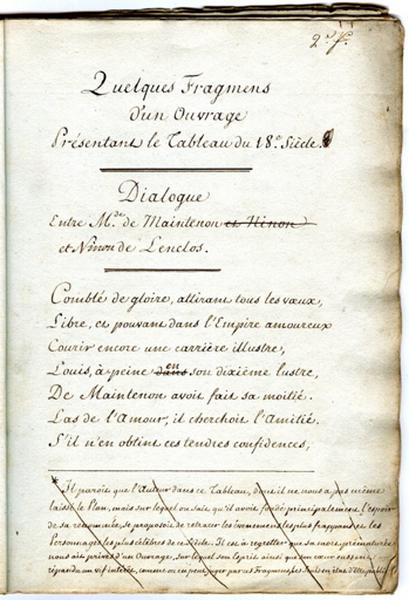 2.e f.
Quelques Fragmens
d'un Ouvrage
Présentant le Tableau du 18.e Siècle.
Dialogue
Entre M.de de Maintenon et Ninon
et Ninon de Lenclos.
Comblé de gloire, attirant tous les vœux,
Libre, et pouvant dans l'Empire amoureux
Courir encore une carrière illustre,
Louis, à peine dans en son dixième lustre,
De Maintenon avoit fait sa moitié.
Las de l'Amour, il cherchoit l'Amitié.
S'il n'en obtint ces tendres confidences,
* Il paroît que l'Auteur dans ce Tableau, dont il ne nous a pas même
laissé le Plan, mais sur lequel on sait qu'il avoit fondé principalement l'espoir
de sa renommée, se proposoit de retracer les évènemens les plus frappans et les
Personnages les plus célèbres de ce Siècle. Il est à regretter que sa mort prématurée
nous ait privés d'un Ouvrage, sur lequel son esprit ainsi que son cœur eussent
répandu un vif intérêt, comme on en peut juger par ces Fragmens,